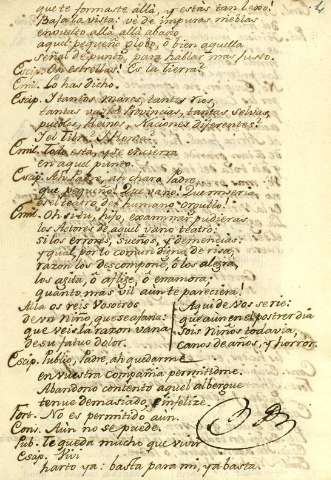 que te formaste allá, y estas tan lexos!
Baja la vista: vé de impuras nieblas
envuelto allá allá abajo
aquel pequeño globo, ó bien aquella
señal de punto, para hablar mas justo.
Oh estrellas! Es la tierra?
Emil. Lo has dicho.
Escip. I tantos mares, tantos rios,
tantas selvas,
Naciones diferentes?
I el Tibre? I Roma?
Emil. Todo está, y se encierra
en aquel punto.
Escip. Ah Padre, ah charo Padre,
que pequeño! Que vano! Que misero
es el teatro del humano orgullo!
Emil. Oh si en, hijo, examinar pudieras
los Actores de aquel vano teatro;
si los errores, sueños, y demencias;
y qual, por lo comun digna de risa,
razon los descompone, ó los alegra,
los agita, ó aflige, ó enamora,
quanto mas vil aun te pareciera!
A la os reis Vosotros
de vn Niño, que se afana:
que veis la razon vana
de su fatuo dolor.
Aqui de Vos se rie:
que aun en el postrer dia
sois Niños todavia,
canos de años, y horror.
Escip. Publio, Padre, ah quedarme
en vuestra Compañia permitidme.
Abandono contento aquel albergue
tenue demasiado, é infelize.
Fort. No es permitido aun.
Cons. Aun no se puede.
Pub. Te queda mucho que vivir
Escip. Vivi
harto ya: basta para mi, ya basta.